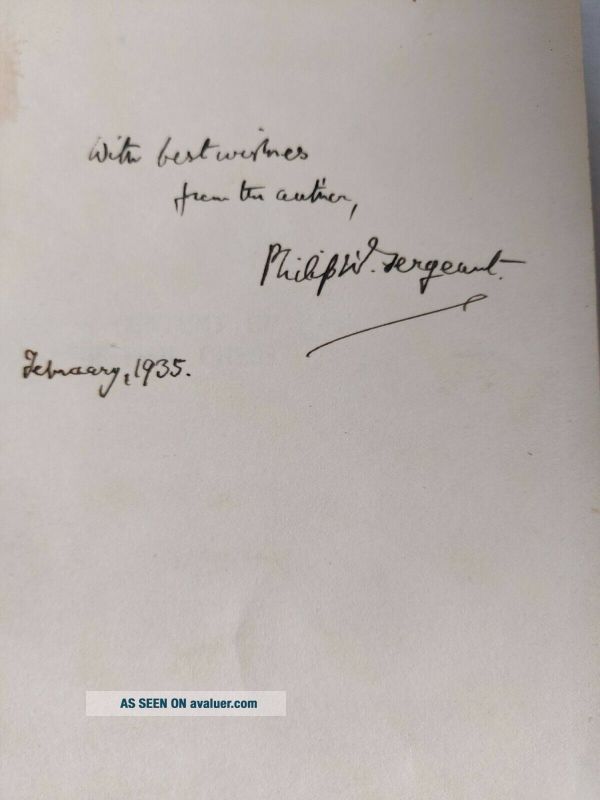 With best wishes
from the author,
Philip W. Sergeant.
February, 1935.
AS SEEN ON avaluer.com